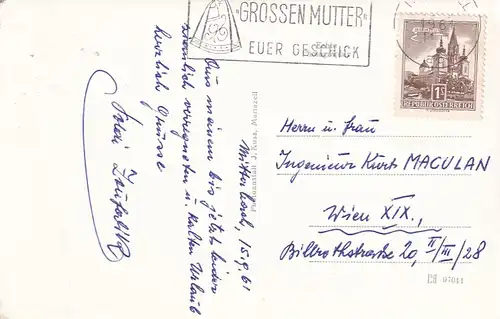 "GROSSEN MUTTER"
EUER GESCHICK
1961
1S
REPUBLIK ÖSTERREICH
Mitterbach, 15.9.61
Aus meinem bis jetzt leider
ziemlich verregneten u. kalten Urlaub
herzliche Grüsse
Herrn u. Frau
Ingenieur Kurt MACULAN
Wien XIX.,
Billrothstrasse 20, II/III/28
J. Kuss, Mariazell
07044